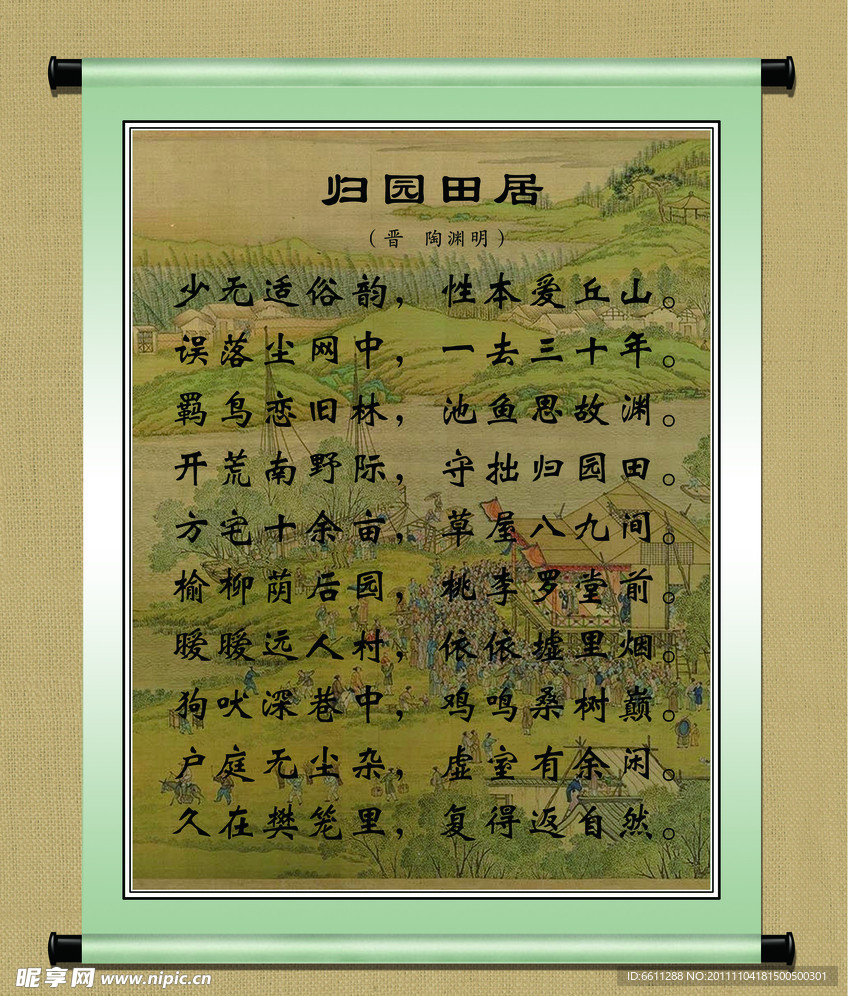 归园田居
（晋 陶渊明）
少无适俗韵，性本爱丘山。
误落尘网中，一去三十年。
羁鸟恋旧林，池鱼思故渊。
开荒南野际，守拙归园田。
方宅十余亩，草屋八九间。
榆柳荫后园，桃李罗堂前。
暧暧远人村，依依墟里烟。
狗吠深巷中，鸡鸣桑树巅。
户庭无尘杂，虚室有余闲。
久在樊笼里，复得返自然。
昵享网 www.nipic.cn
ID:6611288 NO:20111104181500500301